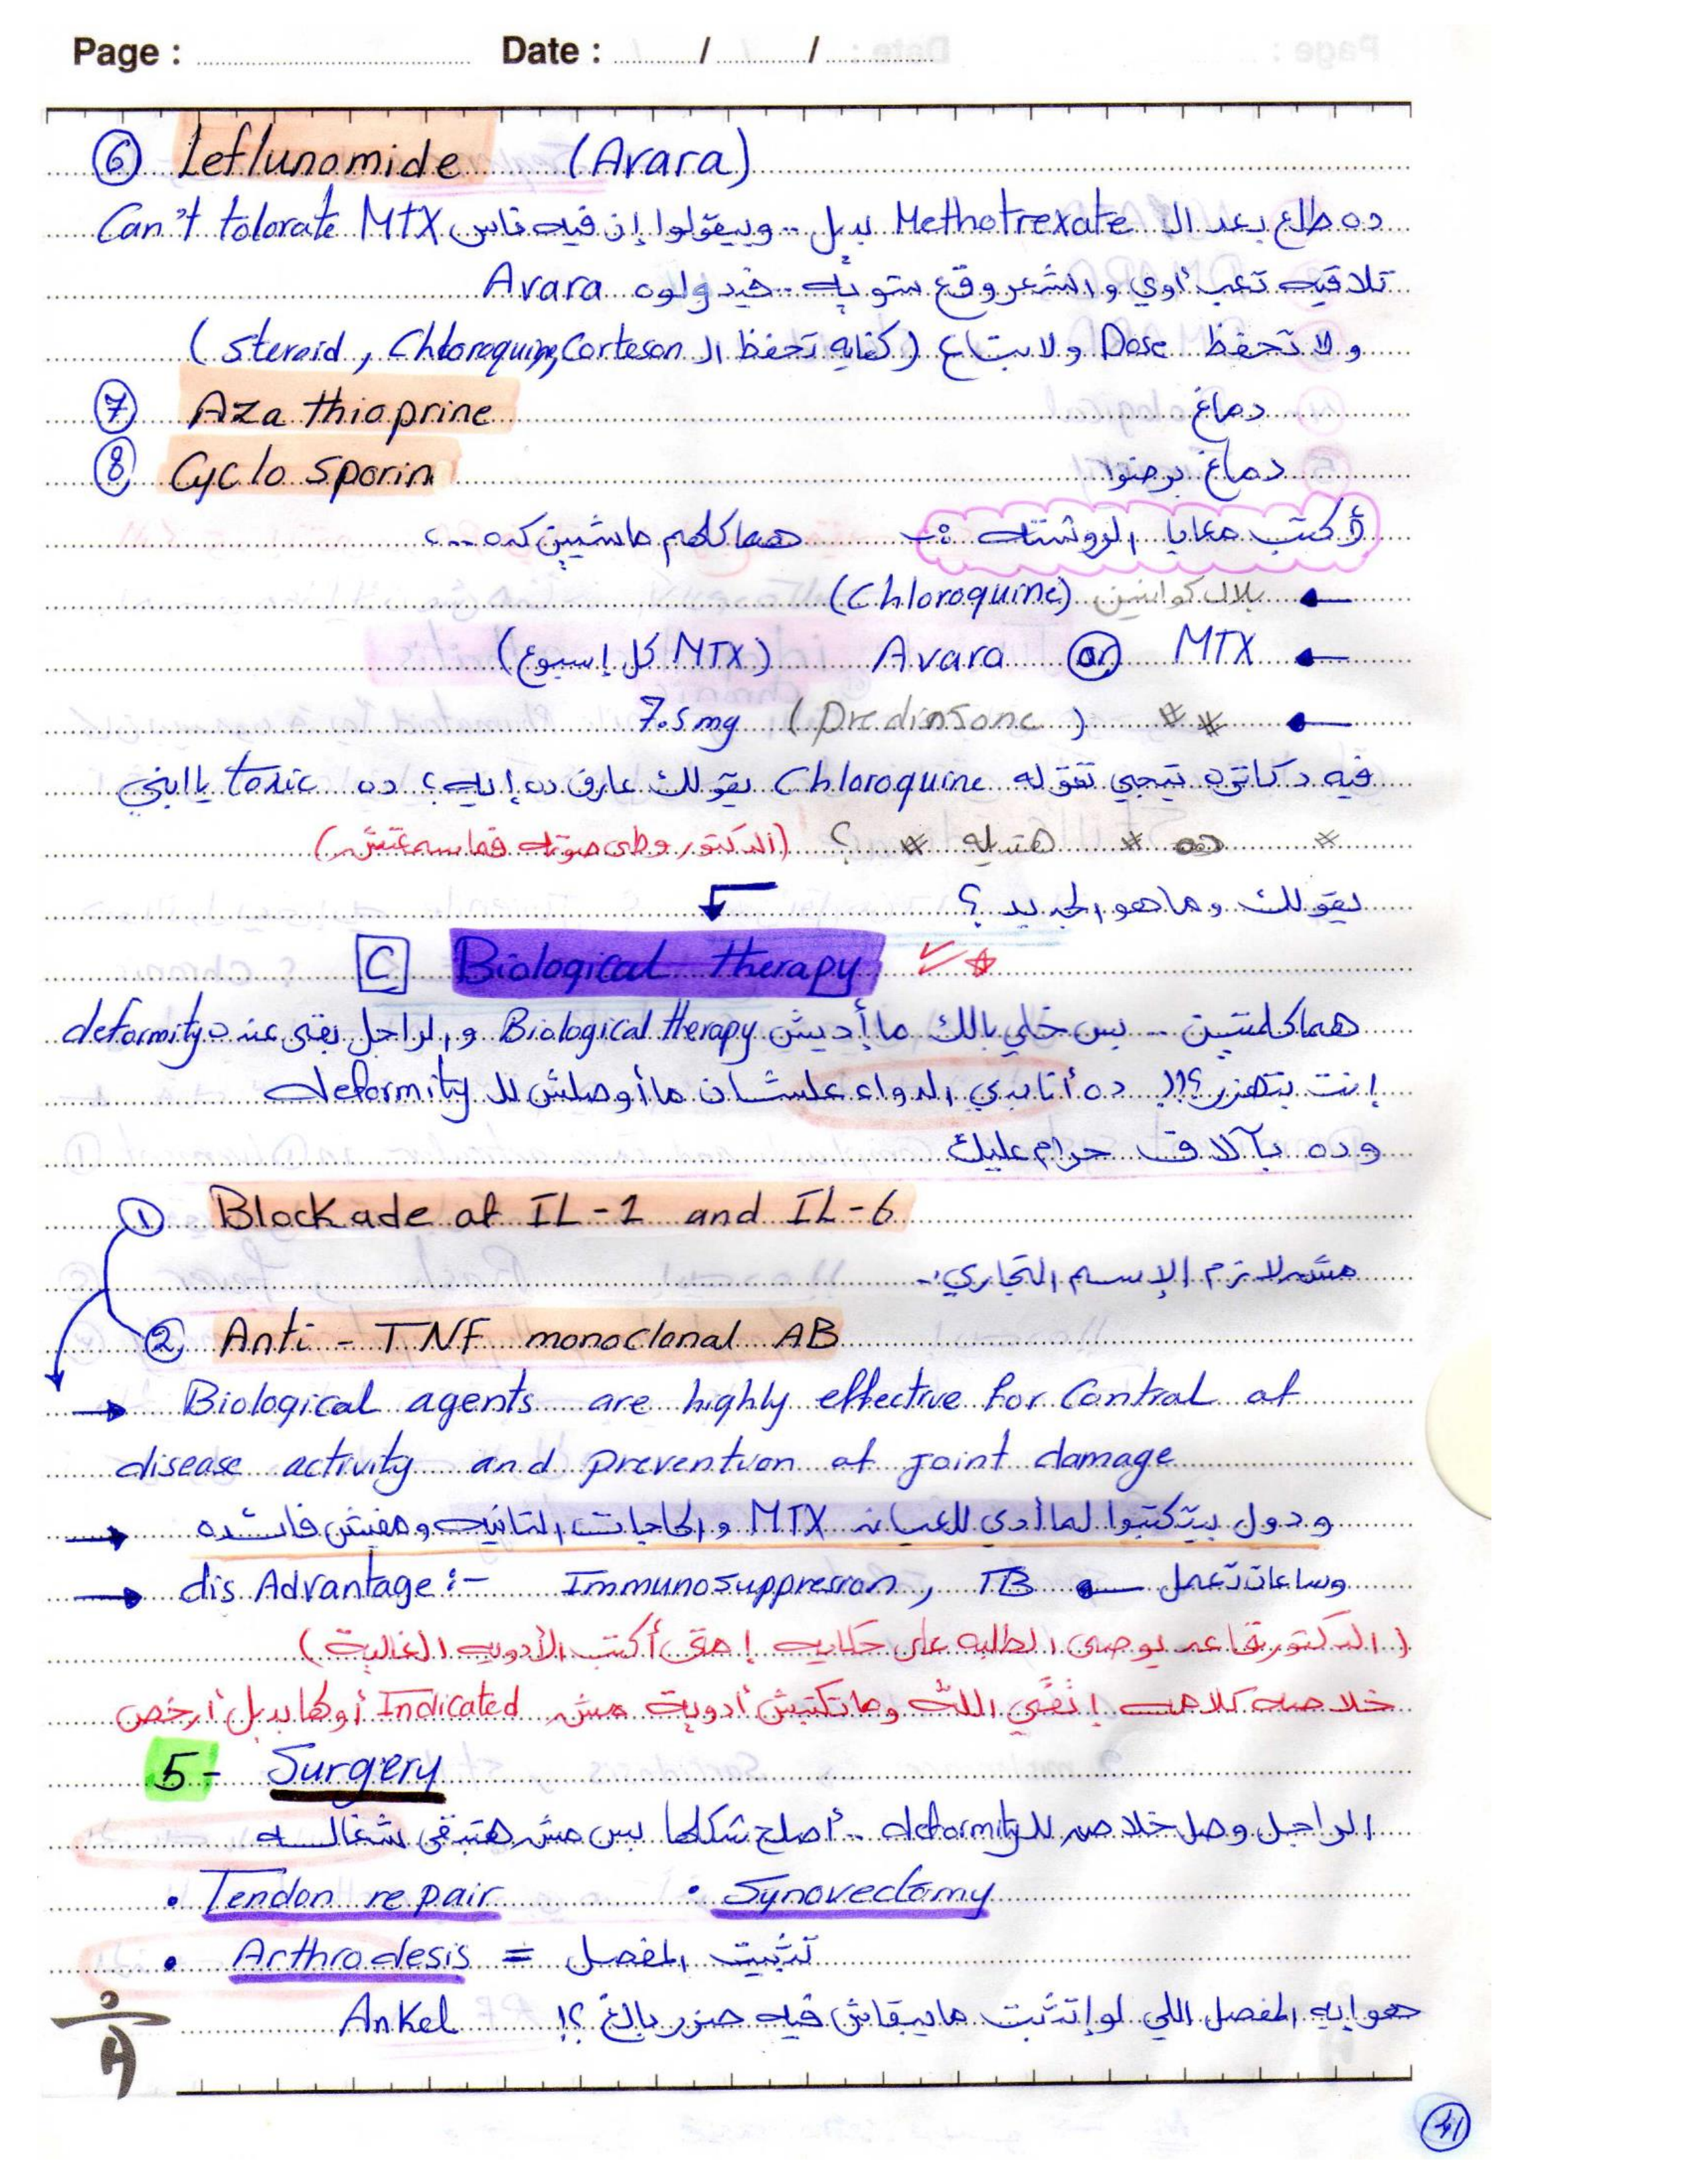 Page : Date : / /
⑥ Leflunomide (Avara)
ده طلع بعد الـ Methotrexate بديل .. وبيقولوا إن فيه ناس Can't tolorate MTX
تلاقيه تعب أوي و الشعر وقع شوية .. فيدولوه Avara
و لا تحفظ Dose ولا بتاع (كفاية تحفظ الـ Corteson, Chloroquine, steroid)
⑦ Aza thioprine دماغ
⑧ Cyclo sporin دماغ برضوا
أكتب معايا الروشتة :- هما كلهم ماشيين كده ..
← بلاكوانين (Chloroquine)
← MTX or Avara (MTX كل إسبوع)
← ** (Predinsone) 7.5 mg
فيه دكاترة تيجي تقوله Chloroquine يقولك عارف ده إيه؟ ده toxic يا ابني
* ده * هتديله * ؟ (الدكتور وطى صوته فما سمعتش)
يقولك وما هو الجديد ؟
C Biological therapy
هما كلمتين .. بس خلي بالك ما أديش Biological therapy والراجل بقى عنده deformity
إنت بتهزر؟!! ده أنا بدي الدواء علشان ما أوصلش للـ deformity
وده بآلاف حرام عليك
① Blockade of IL-1 and IL-6
مش لازم الإسم التجاري :-
② Anti - TNF monoclonal AB
→ Biological agents are highly effective for Control of
disease activity and prevention of joint damage
→ ودول بيتكتبوا لما أدي للعيانة MTX والحاجات التانية ومفيش فائدة
→ dis Advantage :- Immunosuppression, TB ← وساعات تعمل
(الدكتور قاعد يوصي الطلبه على حكاية إمتى أكتب الأدوية الغالية)
خلاصه كلامه إتقي الله وما تكتبش أدوية مش Indicated أو لها بديل أرخص
5- Surgery
الراجل وصل خلاص للـ deformity .. أصلح شكلها بس مش هتبقى شغالة
• Tendon repair • Synovectomy
• Arthrodesis = تثبيت المفصل
هو ايه المفصل اللي لو إتثبت مايبقاش فيه ضرر بالغ ؟! Ankel
41